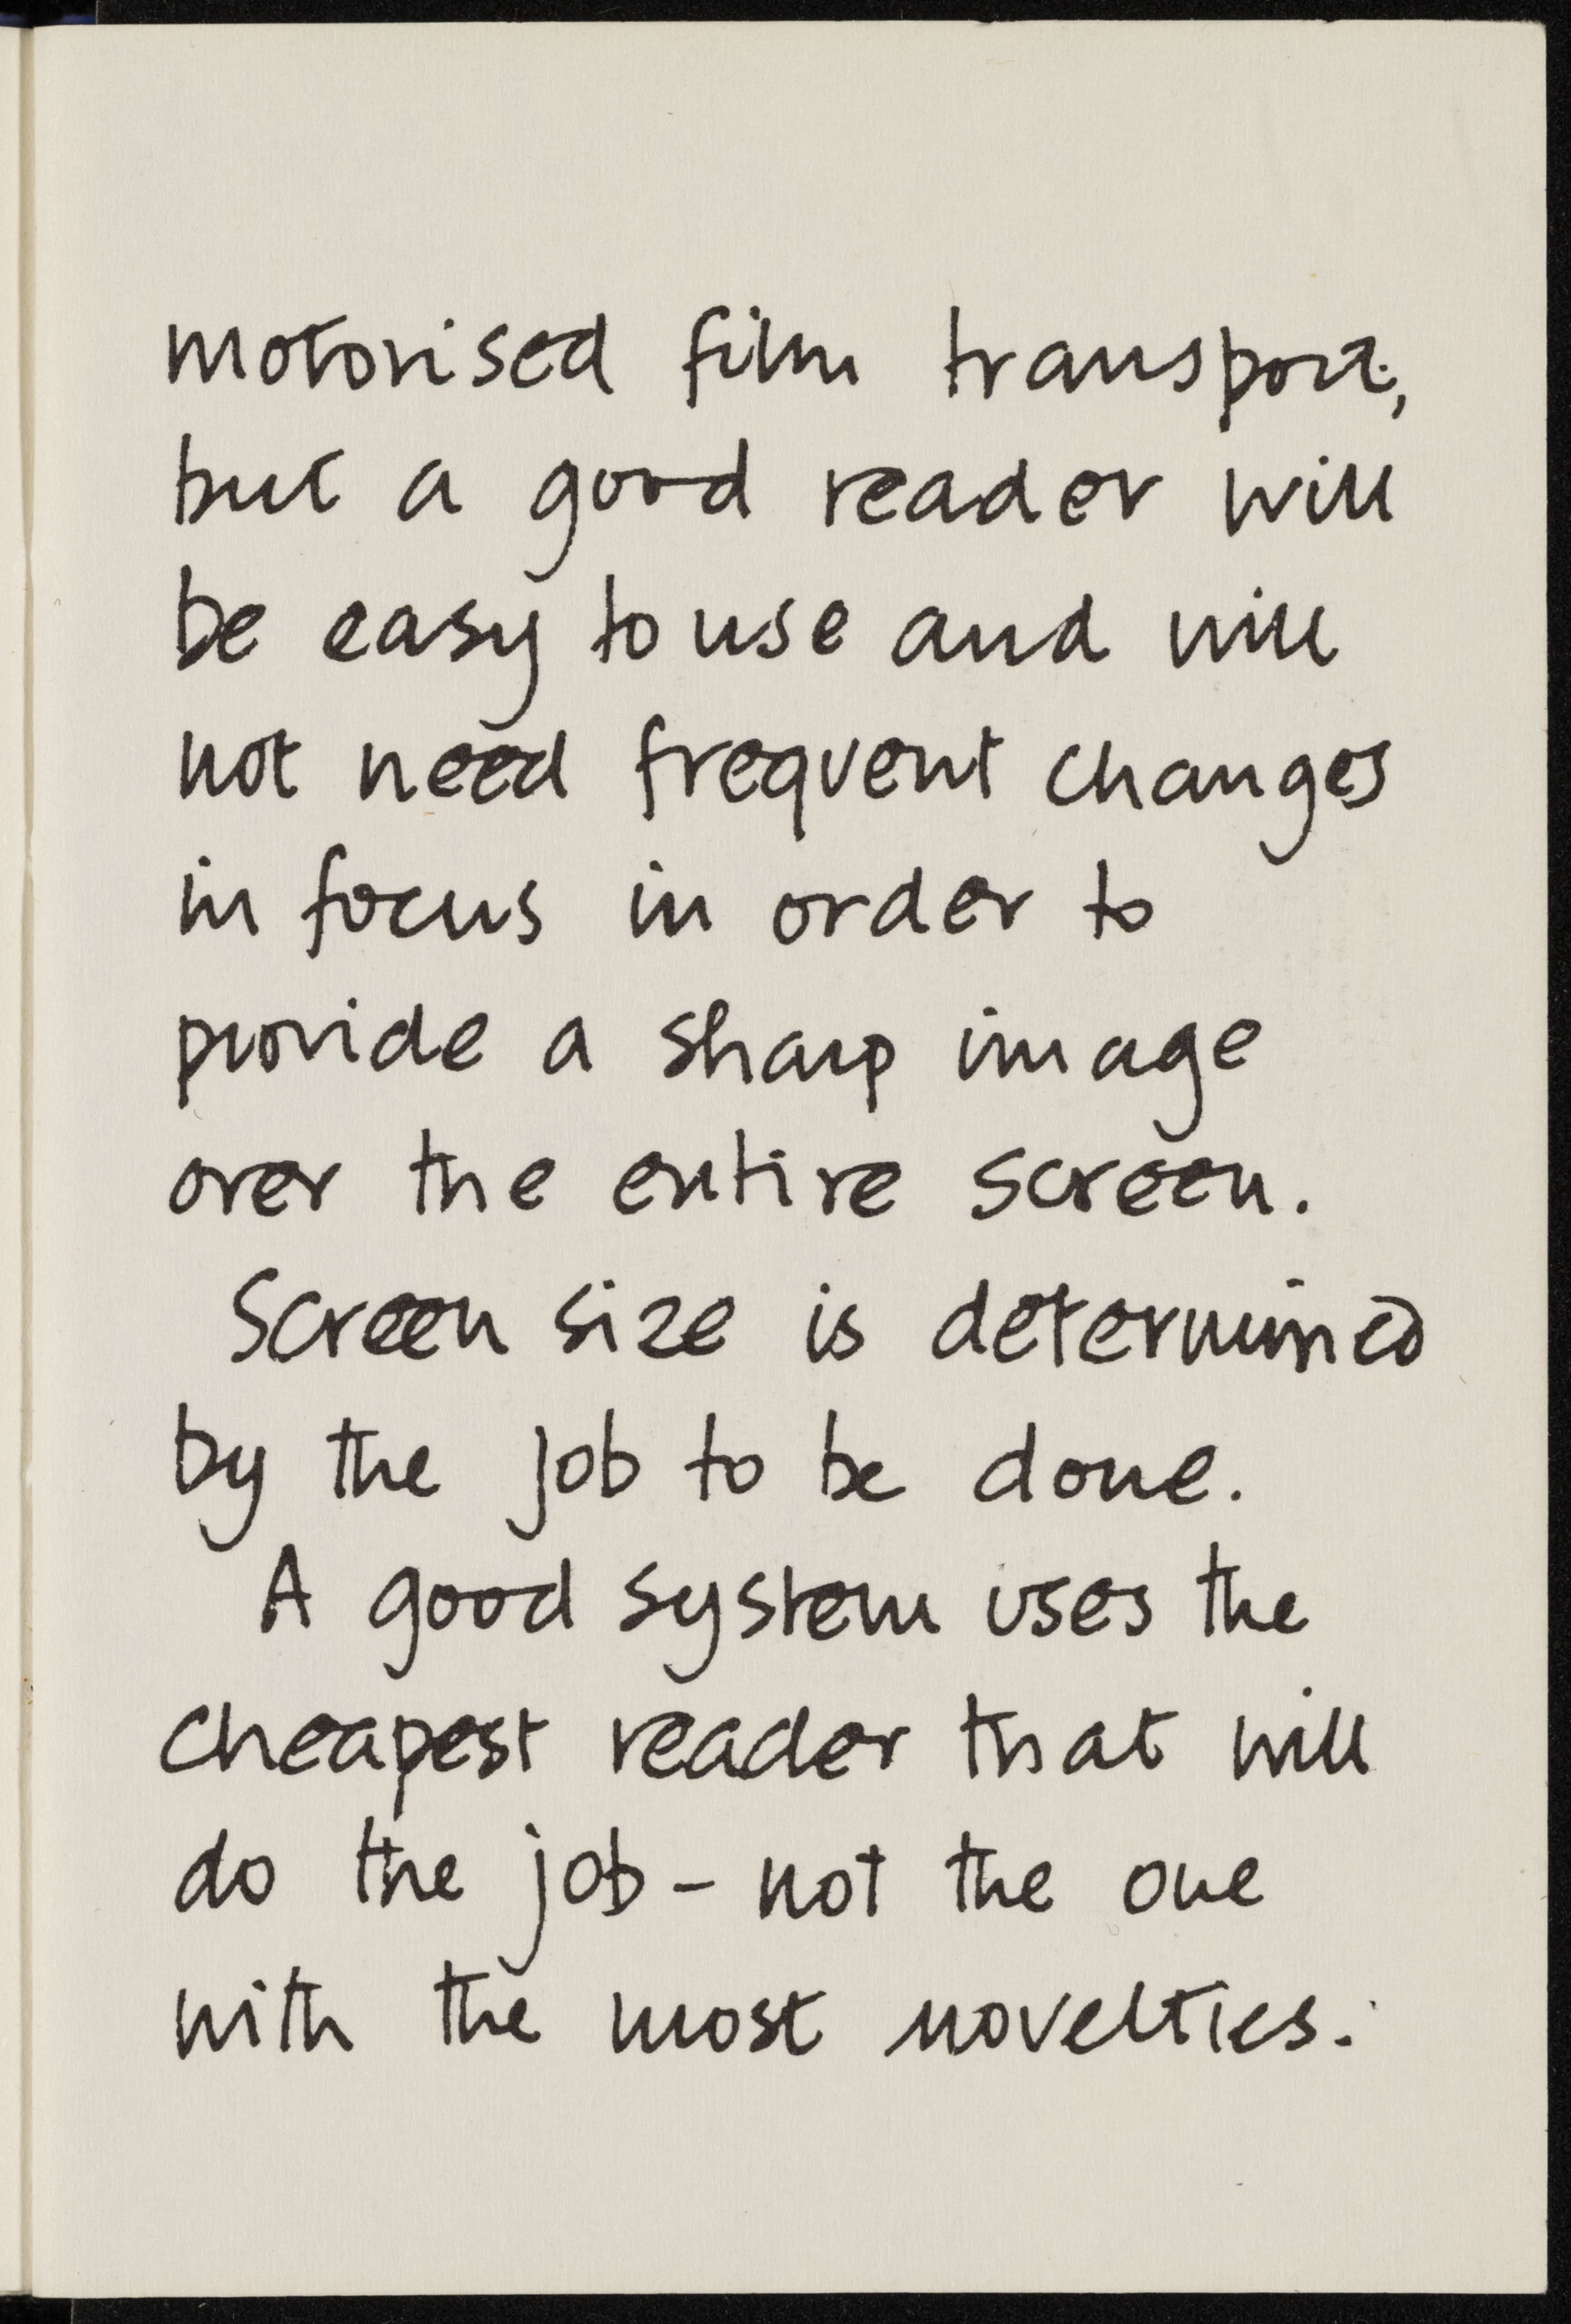 motorised film transport,
but a good reader will
be easy to use and will
not need frequent changes
in focus in order to
provide a sharp image
over the entire screen.
Screen size is determined
by the job to be done.
A good system uses the
cheapest reader that will
do the job - not the one
with the most novelties.